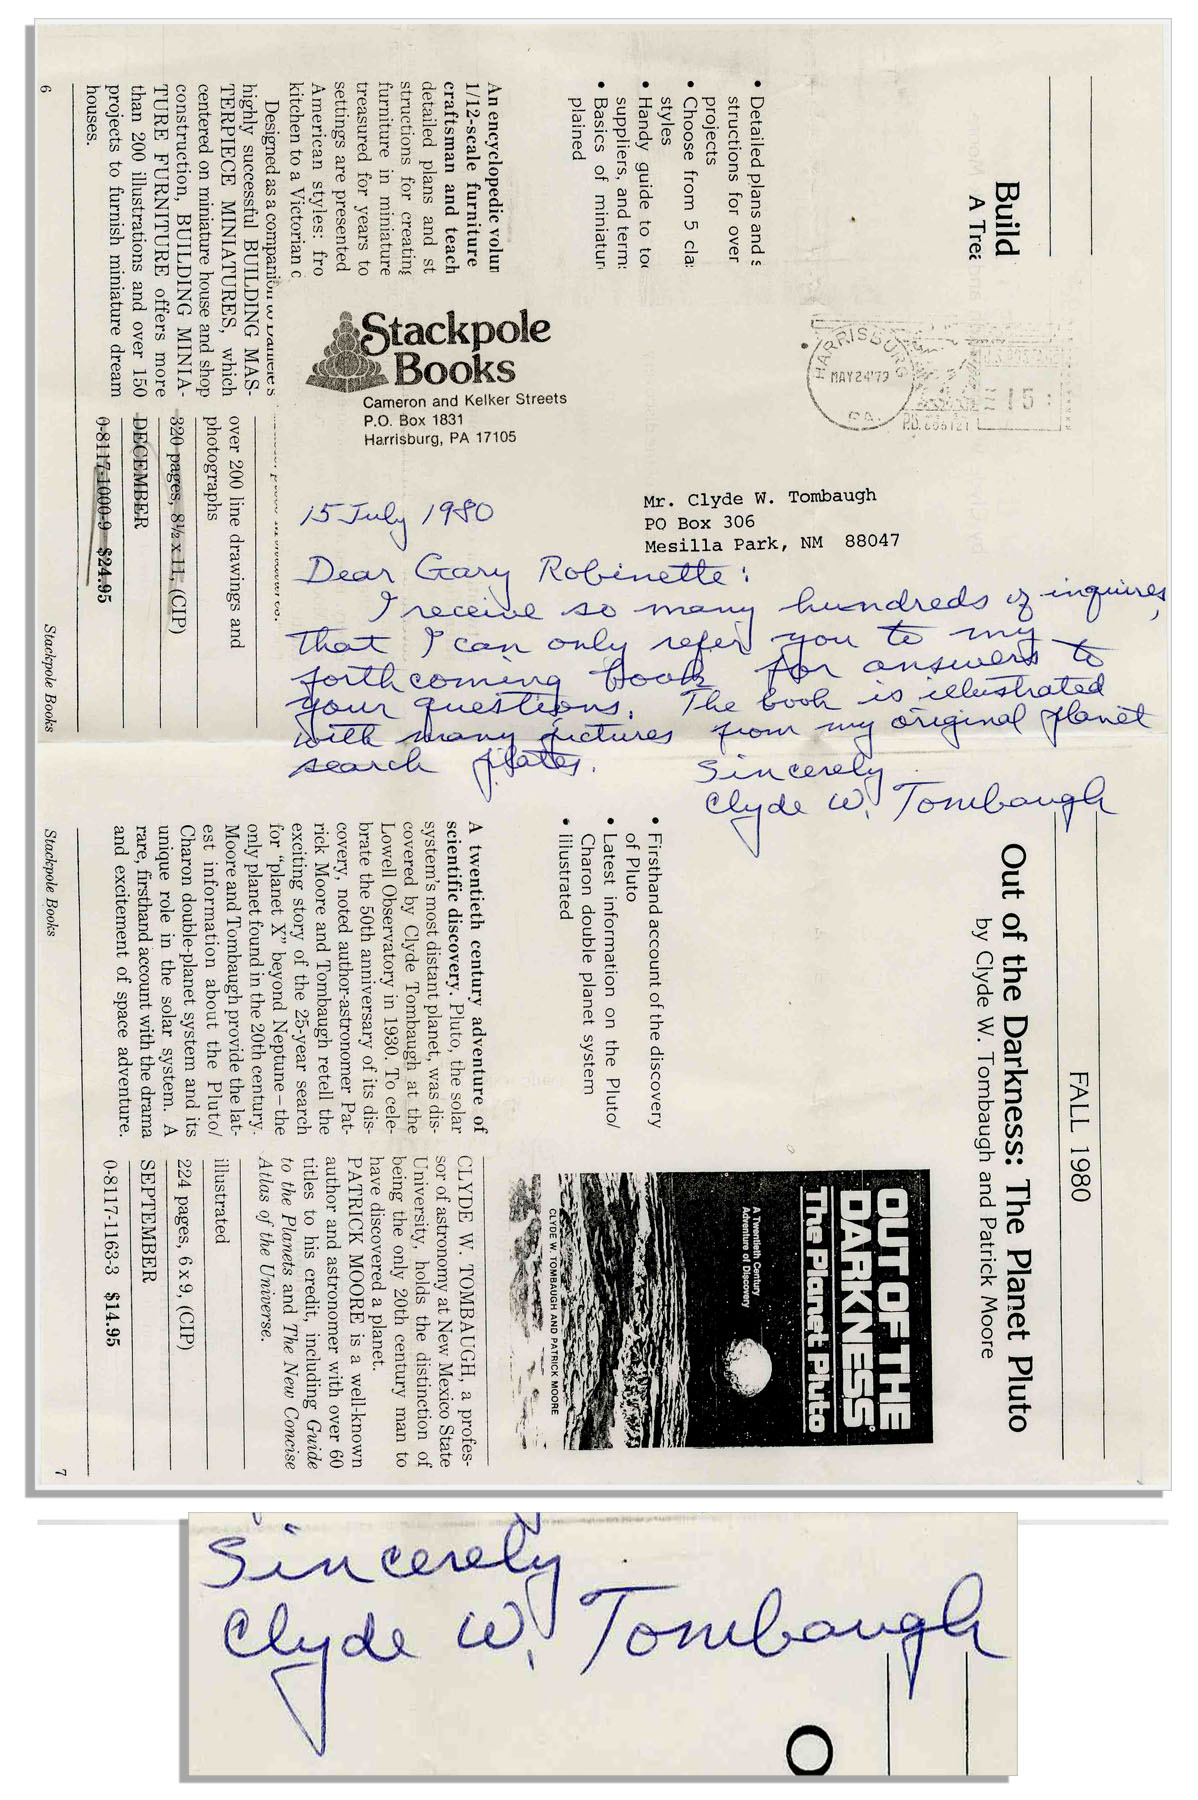 Build
A Trea
• Detailed plans and s
structions for over
projects
• Choose from 5 cla
styles
• Handy guide to to
suppliers, and term
• Basics of miniatur
plained
An encyclopedic volu
1/12-scale furniture
craftsman and teach
detailed plans and st
structions for creating
furniture in miniature
treasured for years to
settings are presented
American styles: fro
kitchen to a Victorian c
Designed as a companion to Daniele's
highly successful BUILDING MAS-
TERPIECE MINIATURES, which
centered on miniature house and shop
construction, BUILDING MINIA-
TURE FURNITURE offers more
than 200 illustrations and over 150
projects to furnish miniature dream
houses.
over 200 line drawings and
photographs
320 pages, 8½ x 11, (CIP)
DECEMBER
0-8117-1000-9 $24.95
6
Stackpole Books
Stackpole
Books
Cameron and Kelker Streets
P.O. Box 1831
Harrisburg, PA 17105
HARRISBURG
MAY 24 '79
PA.
15
Mr. Clyde W. Tombaugh
PO Box 306
Mesilla Park, NM 88047
15 July 1980
Dear Gary Robinette:
I receive so many hundreds of inquires,
that I can only refer you to my
forthcoming book for answers to
your questions. The book is illustrated
with many pictures from my original planet
search plates.
Sincerely
Clyde W. Tombaugh
FALL 1980
Out of the Darkness: The Planet Pluto
by Clyde W. Tombaugh and Patrick Moore
• Firsthand account of the discovery
of Pluto
• Latest information on the Pluto/
Charon double planet system
• Illustrated
OUT OF THE
DARKNESS
The Planet Pluto
A Twentieth Century
Adventure of Discovery
CLYDE W. TOMBAUGH AND PATRICK MOORE
A twentieth century adventure of
scientific discovery. Pluto, the solar
system's most distant planet, was dis-
covered by Clyde Tombaugh at the
Lowell Observatory in 1930. To cele-
brate the 50th anniversary of its dis-
covery, noted author-astronomer Pat-
rick Moore and Tombaugh retell the
exciting story of the 25-year search
for "planet X" beyond Neptune–the
only planet found in the 20th century.
Moore and Tombaugh provide the lat-
est information about the Pluto/
Charon double-planet system and its
unique role in the solar system. A
rare, firsthand account with the drama
and excitement of space adventure.
CLYDE W. TOMBAUGH, a profes-
sor of astronomy at New Mexico State
University, holds the distinction of
being the only 20th century man to
have discovered a planet.
PATRICK MOORE is a well-known
author and astronomer with over 60
titles to his credit, including Guide
to the Planets and The New Concise
Atlas of the Universe.
illustrated
224 pages, 6 x 9, (CIP)
SEPTEMBER
0-8117-1163-3 $14.95
Stackpole Books
7
Sincerely
Clyde W. Tombaugh